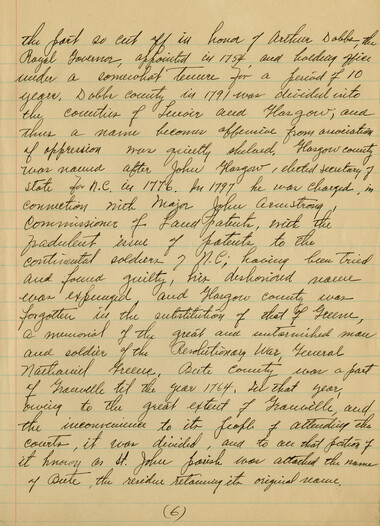 the part so cut off in honor of Arthur Dobbs, the
Royal Governor, appointed in 1754, and holding office
under a somewhat tenure for a period of 10
years. Dobbs county in 1791 was divided into
the counties of Lenoir and Glasgow, and
thus a name become offensive from association
of oppression was quietly shelved. Glasgow county
was named after John Glasgow, elected secretary of
state for N.C. in 1776. In 1797 he was charged, in
connection with Major John Armstrong,
Commissioner of Land Patents, with the
fradulent issue of patents to the
continental soldiers of N.C; having been tried
and found guilty, his dishonored name
was expunged, and Glasgow county was
forgotten in the substitution of that of Greene,
a memorial of the great and untarnished man
and soldier of the Revolutionary War, General
Nathaniel Greene. Bute county was a part
of Granville til the year 1764. In that year,
owing to the great extent of Granville, and
the inconvenience to its people of attending the
courts, it was divided, and to that portion of
it known as St. John Parish was attached the name
of Bute, the residue retaining its original name.
(6)